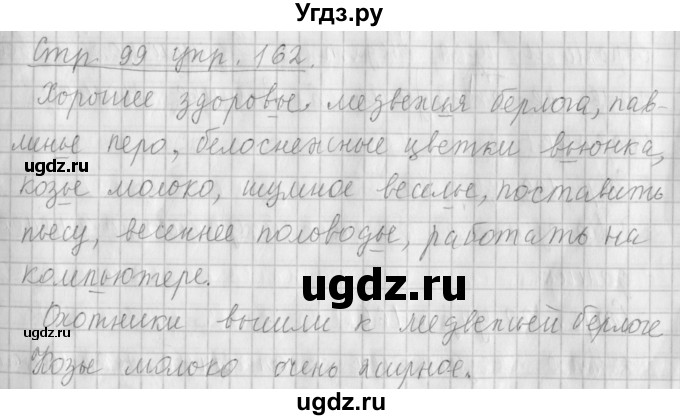 Угдз.ру
Стр. 99 упр. 162.
Хорошее здоровье, медвежья берлога, пав-
линье перо, белоснежные цветки вьюнка,
ugdz.ru
козье молоко, шумное веселье, поставить
ugdz.ru
пьесу, весеннее половодье, работать на
компьютере.
ugdz.ru
Охотники вышли к медвежьей берлоге
ugdz.ru
Козье молоко очень жирное.
ugdz.ru